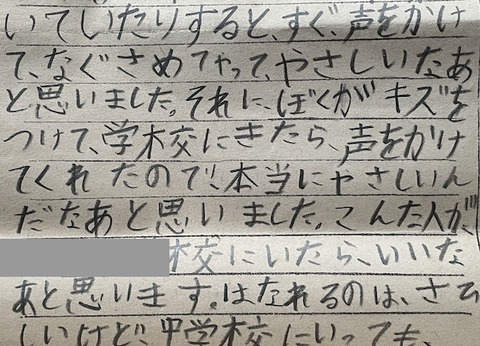 いていたりすると、すぐ、声をかけ
て、なぐさめてやって、やさしいなあ
と思いました。それに、ぼくがキズを
つけて、学校にきたら、声をかけ
てくれたので、本当にやさしいん
だなあと思いました。こんな人が、
校にいたら、いいな
あと思います。はなれるのは、さび
しいけど、中学校にいっても、